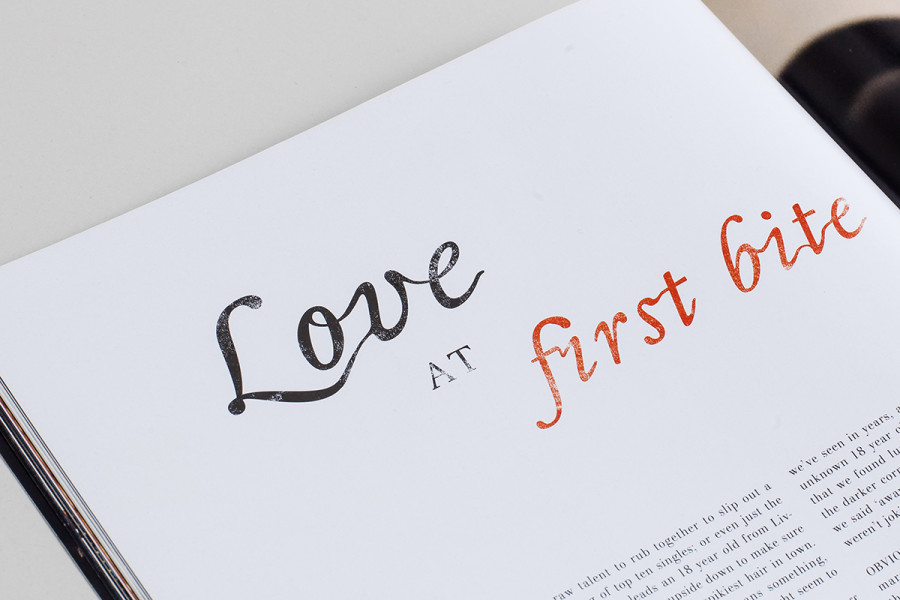 Love
AT
first bite
raw talent to rub together to slip out a
of top ten singles; or even just the
leads an 18 year old from Liv-
upside down to make sure
spikiest hair in town.
means something
might seem to
we've seen in years,
unknown 18 year
that we found
the darker
we said 'away
weren't